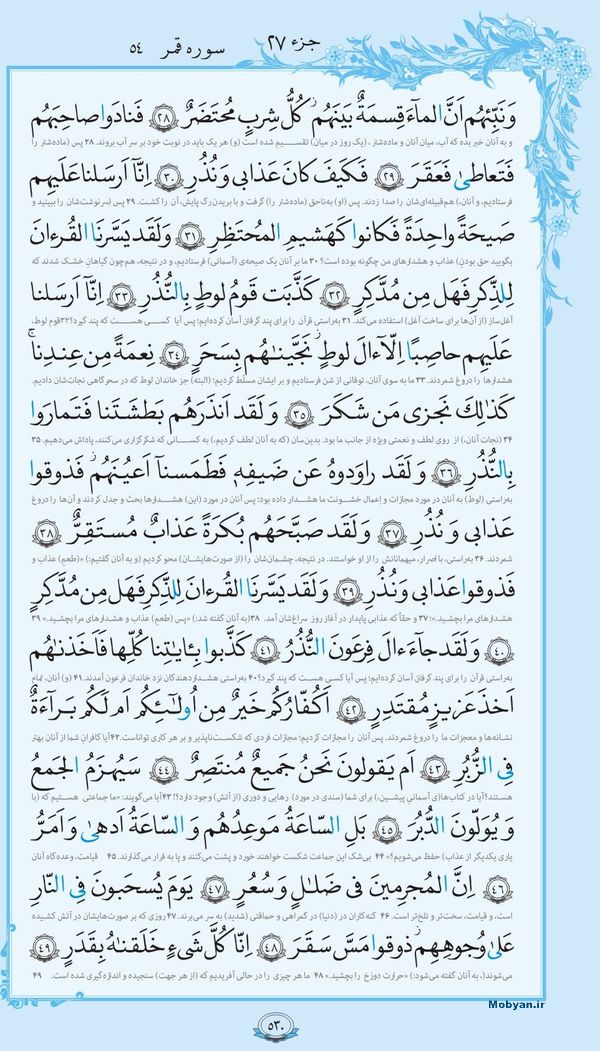 جزء ۲۷
سوره قمر ۵۴
وَ نَبِّئهُم اَنَّ الماءَ قِسمَةٌ بَينَهُم كُلُّ شِربٍ مُحتَضَرٌ ۲۸ فَنادَوا صاحِبَهُم
و به آنان خبر بده که آب، میان آنان و ماده‌شتر، (یک روز در میان) تقسیم شده است (و) هر یک باید در نوبت خود بر سر آب بروند. ۲۸ پس (ماده‌شتر) را
فَتَعاطىٰ فَعَقَرَ ۲۹ فَكَيفَ كانَ عَذابى وَ نُذُرِ ۳۰ اِنّا اَرسَلنا عَلَيهِم
فرستادیم، و آنان،) هم‌قبیله‌ای‌شان را صدا زدند. پس (او) به‌ناحق (ماده‌شتر را) گرفت و با بریدن رگ پایش، آن را کشت. ۲۹ پس (سرنوشت‌شان را ببینید و
صَيحَةً واحِدَةً فَكانوا كَهَشيمِ المُحتَظِرِ ۳۱ وَ لَقَد يَسَّرنَا القُرءانَ
بگویید حق بودن) عذاب و هشدارهای من چگونه بوده است؟ ۳۰ ما بر آنان یک صیحه‌ی (آسمانی) فرستادیم، و در نتیجه، هم‌چون گیاهانِ خشک شدند که
لِلذِّكرِ فَهَل مِن مُدَّكِرٍ ۳۲ كَذَّبَت قَومُ لوطٍ بِالنُّذُرِ ۳۳ اِنّا اَرسَلنا
آغل‌ساز (از آن‌ها برای ساخت آغل) استفاده می‌کند. ۳۱ به‌راستی قرآن را برای پند گرفتن آسان کرده‌ایم؛ پس آیا کسی هست که پند گیرد؟ ۳۲ قوم لوط،
عَلَيهِم حاصِبًا اِلّا ءالَ لوطٍ نَجَّيناهُم بِسَحَرٍ ۳۴ نِعمَةً مِن عِندِنا
هشدارها را دروغ شمردند. ۳۳ ما به سوی آنان، توفانی از شن فرستادیم و بر ایشان مسلط کردیم؛ (البته) جز خاندان لوط که در سحرگاهی نجات‌شان دادیم.
كَذٰلِكَ نَجزى مَن شَكَرَ ۳۵ وَ لَقَد اَنذَرَهُم بَطشَتَنا فَتَمارَوا
۳۴ (نجات آنان،) از روی لطف و نعمتی ویژه از جانب ما بود. بدین‌سان (که به آنان لطف کردیم)، به کسانی که شکرگزاری می‌کنند، پاداش می‌دهیم. ۳۵
بِالنُّذُرِ ۳۶ وَ لَقَد راوَدوهُ عَن ضَيفِهٖ فَطَمَسنا اَعيُنَهُم فَذوقوا
به‌راستی (لوط) به آنان در مورد مجازات و اِعمال خشونت ما هشدار داده بود؛ پس آنان در مورد (این) هشدارها بحث و جدل کردند و آن‌ها را دروغ
عَذابى وَ نُذُرِ ۳۷ وَ لَقَد صَبَّحَهُم بُكرَةً عَذابٌ مُستَقِرٌّ ۳۸
شمردند. ۳۶ به‌راستی، با اصرار، میهمانانش را از او خواستند. در نتیجه، چشمان‌شان را (از صورت‌هایشان) محو کردیم (و به آنان گفتیم:) «(طعم) عذاب و
فَذوقوا عَذابى وَ نُذُرِ ۳۹ وَ لَقَد يَسَّرنَا القُرءانَ لِلذِّكرِ فَهَل مِن مُدَّكِرٍ
هشدارهای مرا بچشید.» ۳۷ و حقاً که عذابی پایدار در آغاز روز سراغ‌شان آمد. ۳۸ (به آنان گفته شد:) «پس (طعم) عذاب و هشدارهای مرا بچشید.» ۳۹
۴۰ وَ لَقَد جاءَ ءالَ فِرعَونَ النُّذُرُ ۴۱ كَذَّبوا بِئاياتِنا كُلِّها فَاَخَذناهُم
به‌راستی قرآن را برای پند گرفتن آسان کرده‌ایم؛ پس آیا کسی هست که پند گیرد؟ ۴۰ به‌راستی هشداردهندگان نزد خاندان فرعون آمدند. ۴۱ (و) آنان، تمام
اَخذَ عَزيزٍ مُقتَدِرٍ ۴۲ اَكُفّارُكُم خَيرٌ مِن اُولٰئِكُم اَم لَكُم بَراءَةٌ
نشانه‌ها و معجزات ما را دروغ شمردند. پس آنان را مجازات کردیم؛ مجازات فردی که شکست‌ناپذیر و بر هر کاری تواناست. ۴۲ آیا کافرانِ شما از آنان بهتر
فِى الزُّبُرِ ۴۳ اَم يَقولونَ نَحنُ جَميعٌ مُنتَصِرٌ ۴۴ سَيُهزَمُ الجَمعُ
هستند؟ آیا در کتاب‌ها(ی آسمانیِ پیشین،) برای شما (سندی در مورد) رهایی و دوری (از آتش) وجود دارد؟! ۴۳ آیا می‌گویند: «ما جماعتی هستیم که (با
وَ يُوَلّونَ الدُّبُرَ ۴۵ بَلِ السّاعَةُ مَوعِدُهُم وَ السّاعَةُ اَدهىٰ وَ اَمَرُّ
یاری یکدیگر از عذاب) حفظ می‌شویم؟» ۴۴ بی‌شک این جماعت شکست خواهند خورد و پشت می‌کنند و پا به فرار می‌گذارند. ۴۵ قیامت، وعده‌گاه آنان
۴۶ اِنَّ المُجرِمينَ فى ضَلالٍ وَ سُعُرٍ ۴۷ يَومَ يُسحَبونَ فِى النّارِ
است، و قیامت، سخت‌تر و تلخ‌تر است. ۴۶ گنه‌کاران در (دنیا) در گمراهی و حماقتی (شدید) به سر می‌برند. ۴۷ روزی که بر صورت‌هایشان در آتش کشیده
عَلىٰ وُجوهِهِم ذوقوا مَسَّ سَقَرَ ۴۸ اِنّا كُلَّ شَىءٍ خَلَقناهُ بِقَدَرٍ ۴۹
می‌شوند(، به آنان گفته می‌شود:) «حرارت دوزخ را بچشید.» ۴۸ ما هر چیزی را در حالی آفریدیم که (از هر جهت) سنجیده و اندازه‌گیری شده است. ۴۹
۵۳۰
Mobyan.ir